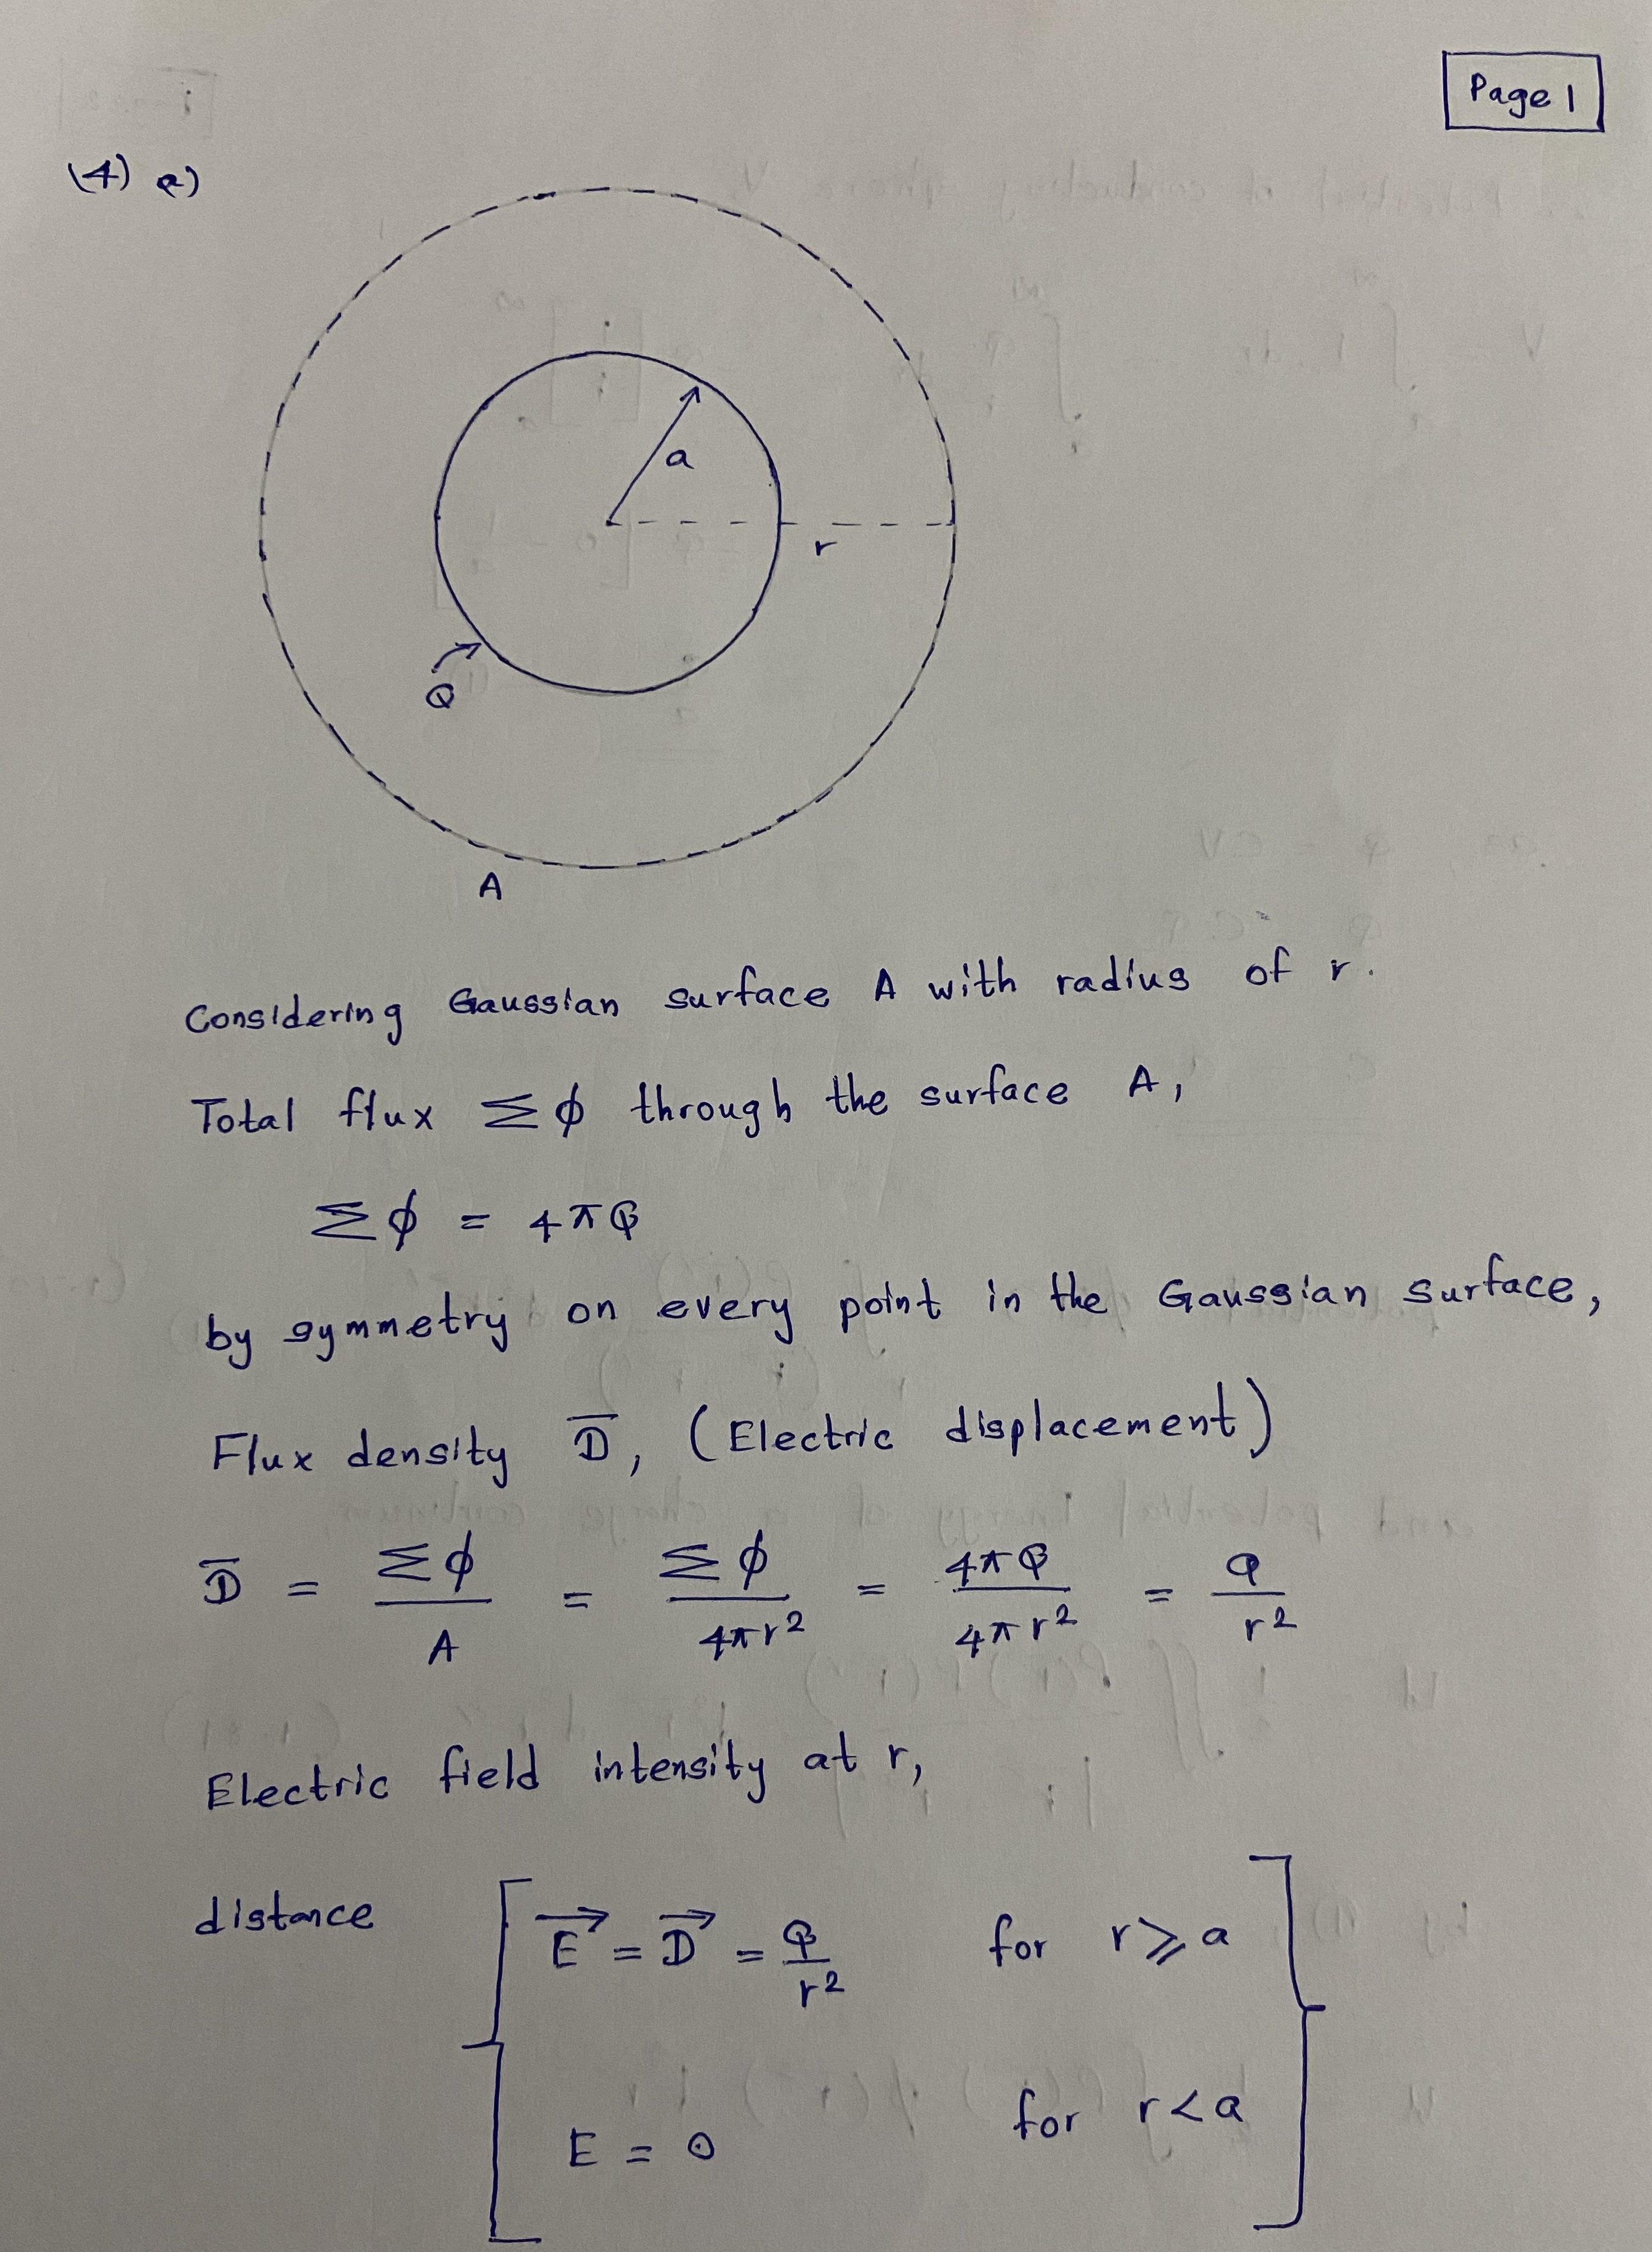 Page 1
(4) a)
a
r
Q
A
Considering Gaussian surface A with radius of r.
Total flux Σϕ through the surface A,
Σϕ = 4πQ
by symmetry on every point in the Gaussian surface,
Flux density D̅, (Electric displacement)
D̅ = Σϕ/A = Σϕ/4πr² = 4πQ/4πr² = Q/r²
Electric field intensity at r,
distance [ E⃗ = D⃗ = Q/r² for r ⩾ a ]
E = 0 for r < a